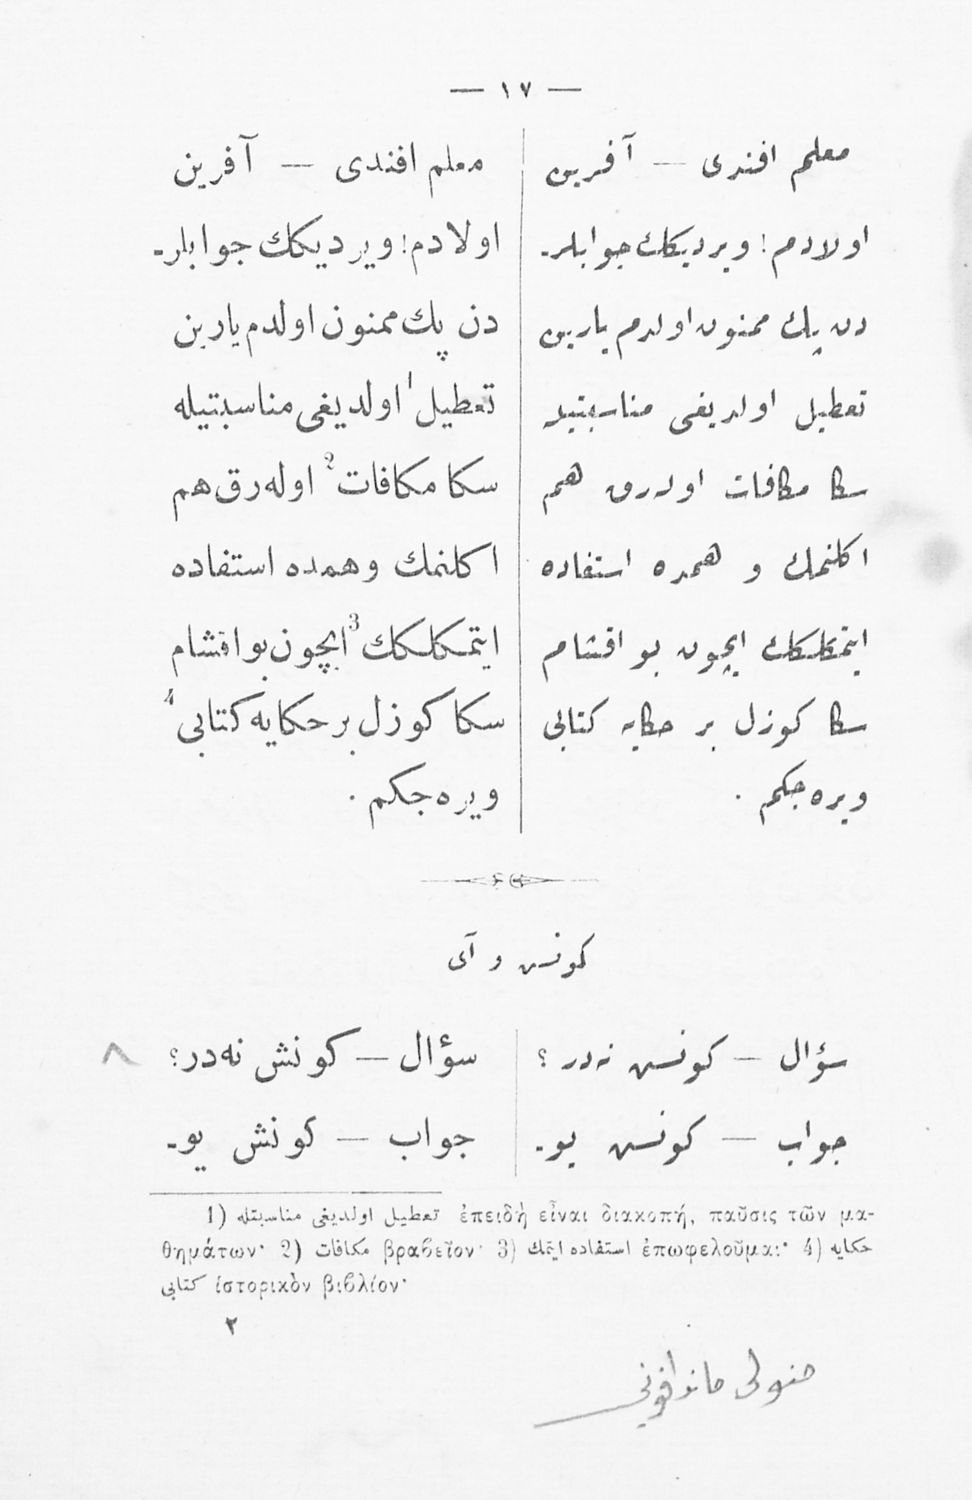 — ١٧ —
معلم افندی — آفرین
اولادم! ویردیكك جوابلر-
دن پك ممنون اولدم یارین
تعطیل اولدیغی مناسبتیله
سكا مكافات اوله‌رق هم
اكلنمك و همده استفاده
ایتمكلكك ایچون بو اقشام
سكا كوزل بر حكایه كتابی
ویره‌جكم .
معلم افندی — آفرین
اولادم! ویردیكك جوابلر-
دن پك ممنون اولدم یارین
تعطیل¹ اولدیغی مناسبتیله
سكا مكافات² اوله‌رق هم
اكلنمك و همده استفاده
ایتمكلكك³ ایچون بو اقشام
سكا كوزل بر حكایه كتابی⁴
ویره‌جكم .
كونش و آی
سؤال — كونش نه‌در ؟
جواب — كونش بو-
سؤال — كونش نه‌در؟
جواب — كونش بو-
1) تعطیل اولدیغی مناسبتله ἐπειδὴ εἶναι διακοπή, παῦσις τῶν μα-
θημάτων· 2) مكافات βραβεῖον· 3) استفاده ایتمك ἐπωφελοῦμαι· 4) حكایه
كتابی ἱστορικὸν βιβλίον·
٢